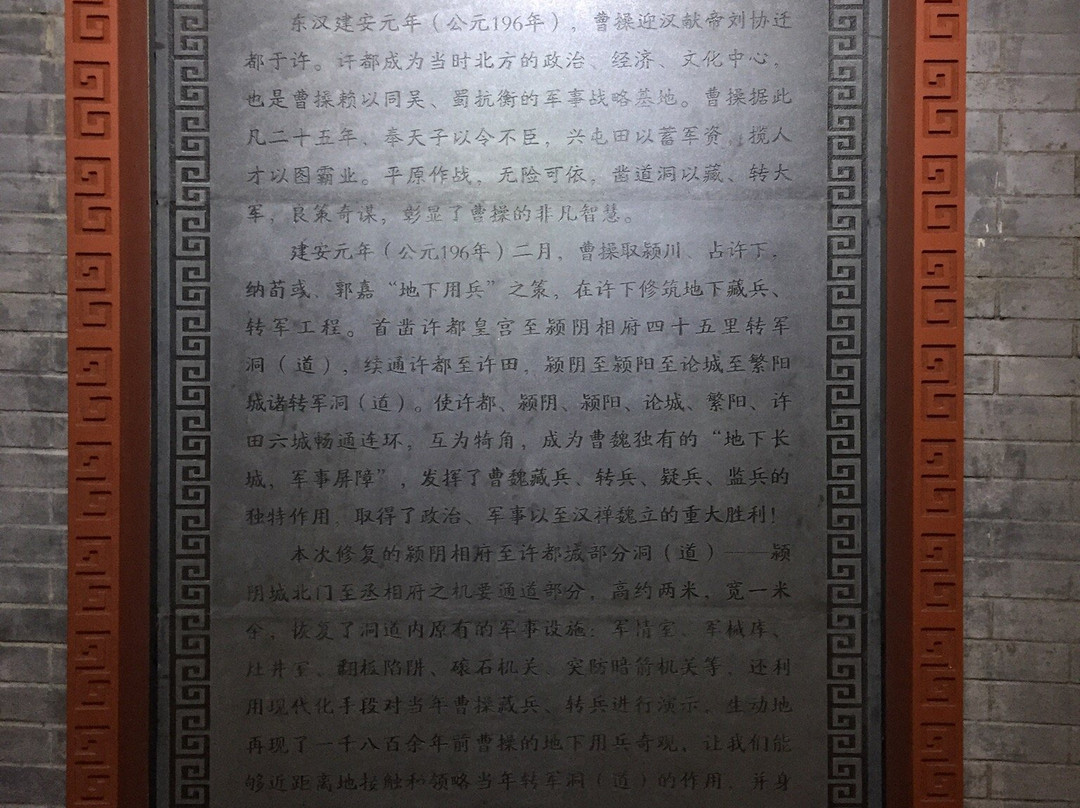 东汉建安元年（公元196年），曹操迎汉献帝刘协迁
都于许。许都成为当时北方的政治、经济、文化中心，
也是曹操赖以同吴、蜀抗衡的军事战略基地。曹操据此
凡二十五年、奉天子以令不臣，兴屯田以蓄军资，揽人
才以图霸业。平原作战，无险可依，凿道洞以藏、转大
军，良策奇谋，彰显了曹操的非凡智慧。
建安元年（公元196年）二月，曹操取颍川、占许下，
纳荀彧、郭嘉“地下用兵”之策，在许下修筑地下藏兵、
转军工程。首凿许都皇宫至颍阴相府四十五里转军
洞（道），续通许都至许田，颍阴至颍阳至论城至繁阳
城诸转军洞（道）。使许都、颍阴、颍阳、论城、繁阳、许
田六城畅通连环，互为犄角，成为曹魏独有的“地下长
城，军事屏障”，发挥了曹魏藏兵、转兵、疑兵、监兵的
独特作用，取得了政治、军事以至汉禅魏立的重大胜利！
本次修复的颍阴相府至许都城部分洞（道）——颍
阴城北门至丞相府之机要通道部分，高约两米，宽一米
余，恢复了洞道内原有的军事设施：军情室、军械库、
灶井室、翻板陷阱、礌石机关、突防暗箭机关等，还利
用现代化手段对当年曹操藏兵、转兵进行演示，生动地
再现了一千八百余年前曹操的地下用兵奇观，让我们能
够近距离地接触和领略当年转军洞（道）的作用，并身